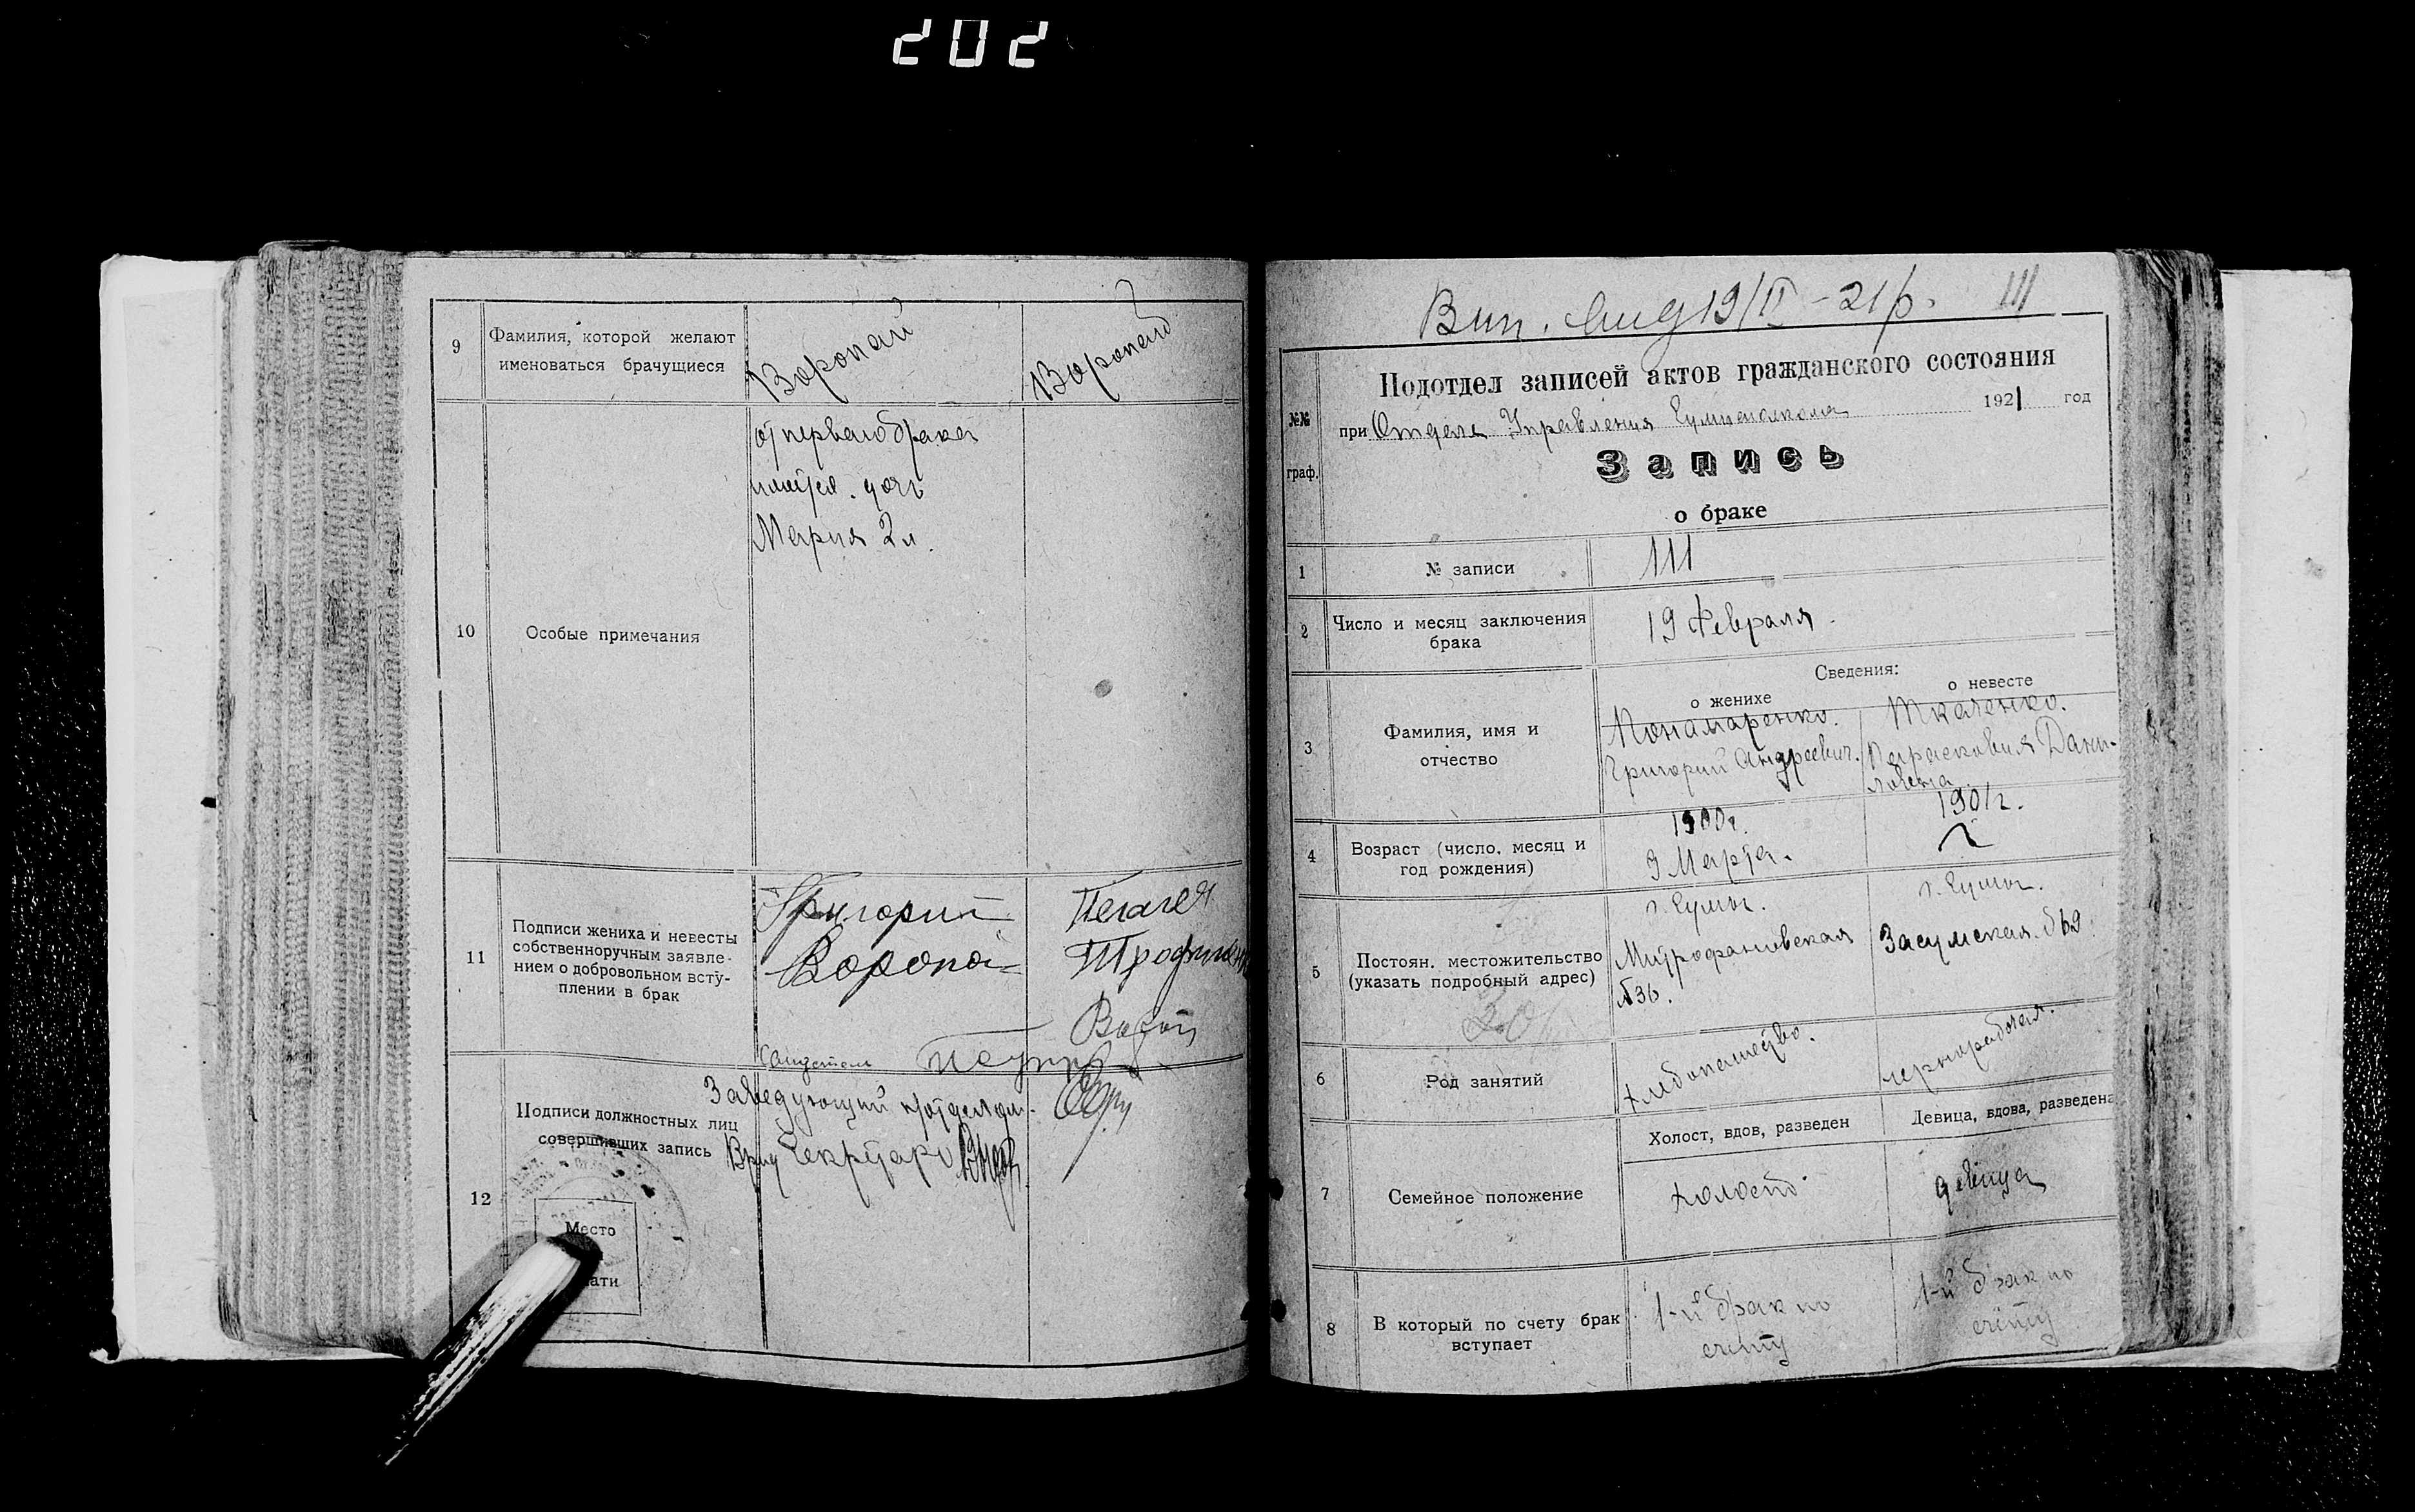 202
9
Фамилия, которой желают
именоваться брачущиеся
Воропай
Воропай
10
Особые примечания
от первого брака
имеется дочь
Мария 2 л.
11
Подписи жениха и невесты
собственноручным заявле-
нием о добровольном всту-
плении в брак
Григорий
Воропай
Пелагея
12
Подписи должностных лиц
совершивших запись
Заведующий
Врид Секретаря
Место
ати
19/II - 21 р. 111
№№
граф.
Подотдел записей актов гражданского состояния
при Отделе Управления 1921 год
Запись
о браке
1
№ записи
111
2
Число и месяц заключения
брака
19 Февраля.
Сведения:
о женихе
о невесте
3
Фамилия, имя и
отчество
Понамаренко.
Григорий Андреевич.
Ткаченко.
Парасковия Дани-
ловна
4
Возраст (число, месяц и
год рождения)
1900 г.
9 Марта.
1901 г.
5
Постоян. местожительство
(указать подробный адрес)
г. Сумы.
Митрофановская
№ 36.
г. Сумы.
Засумская
6
Род занятий
хлебопашество.
чернорабочая.
7
Семейное положение
Холост, вдов, разведен
Девица, вдова, разведена
холост
девица
8
В который по счету брак
вступает
1-й брак по
счету
1-й брак по
счету